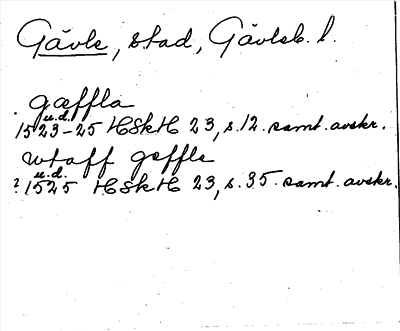 Gävle, stad, Gävleb. l.
gæffla
u.d.
1523-25 HSkH 23, s. 12. samt. avskr.
wtaff geffle
u.d.
? 1525 HSkH 23, s. 35. samt. avskr.